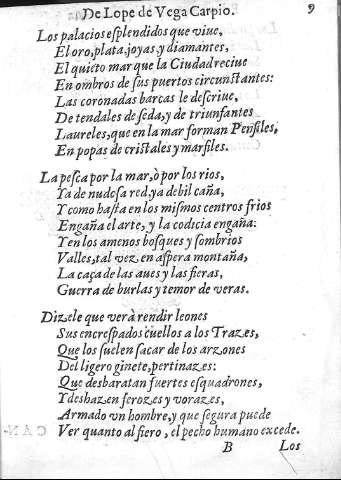 De Lope de Vega Carpio. 9
Los palacios eſplendidos que viue,
El oro, plata, joyas, y diamantes,
El quieto mar que la Ciudad reciue
En ombros de ſus puertos circunſtantes:
Las coronadas barcas le deſcriue,
De tendales de ſeda, y de triunfantes
Laureles, que en la mar forman Penſiles,
En popas de criſtales y marfiles.
La peſca por la mar, ò por los rios,
Ya de nudoſa red, ya debil caña,
Y como haſta en los miſmos centros frios
Engaña el arte, y la codicia engaña:
Y en los amenos boſques y ſombrios
Valles, tal vez, en aſpera montaña,
La caça de las aues y las fieras,
Guerra de burlas y temor de veras.
Dizele que verà rendir leones
Sus encreſpados cuellos a los Trazes,
Que los ſuelen ſacar de los arzones
Del ligero ginete, pertinazes:
Que desbaratan fuertes eſquadrones,
Y deshazen ferozes y vorazes,
Armado vn hombre, y que ſegura puede
Ver quanto al fiero, el pecho humano excede.
B Los